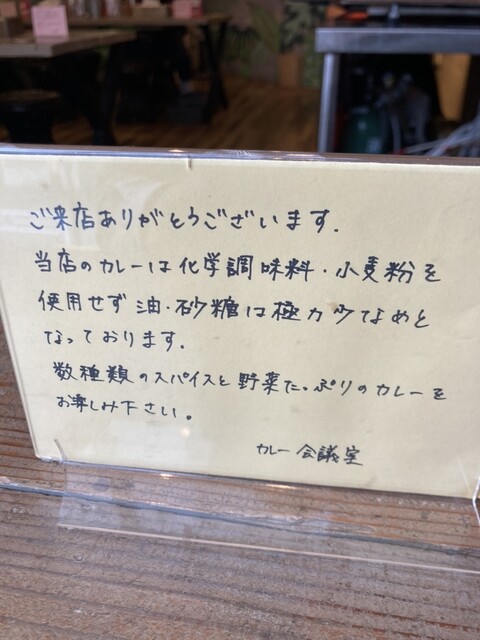 ご来店ありがとうございます.
当店のカレーは化学調味料・小麦粉を
使用せず油・砂糖は極力少なめと
なっております.
数種類のスパイスと野菜たっぷりのカレーを
お楽しみ下さい。
カレー会議室